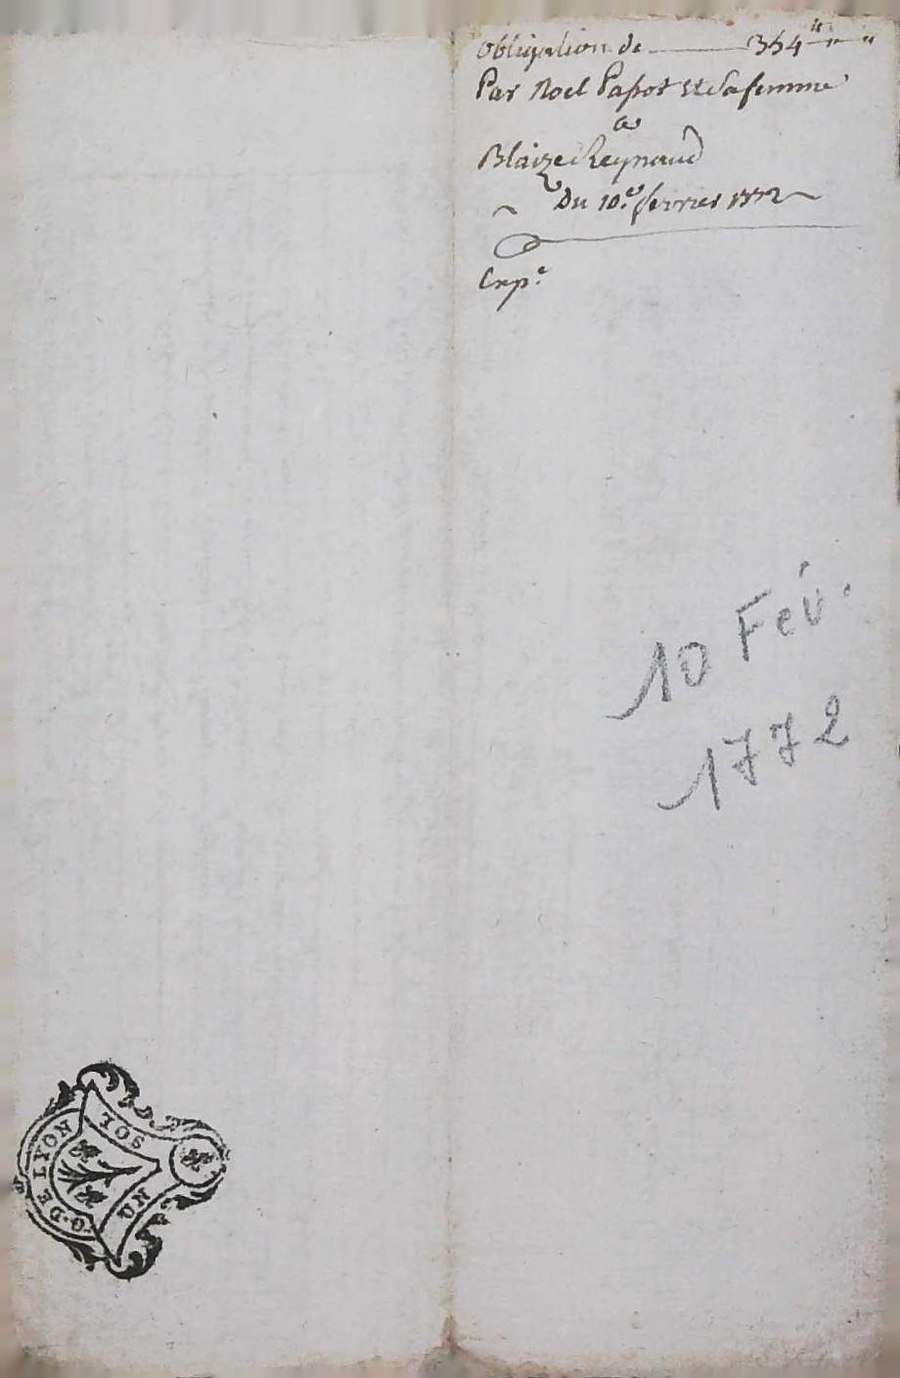 Obligation de ——— 354 " "
Par Noel Papot et sa femme
a
Blaize Reynaud
Du 10.e fevrier 1772
Exp.e
10 Fév.
1772
G. DE LYON
UN
SOL